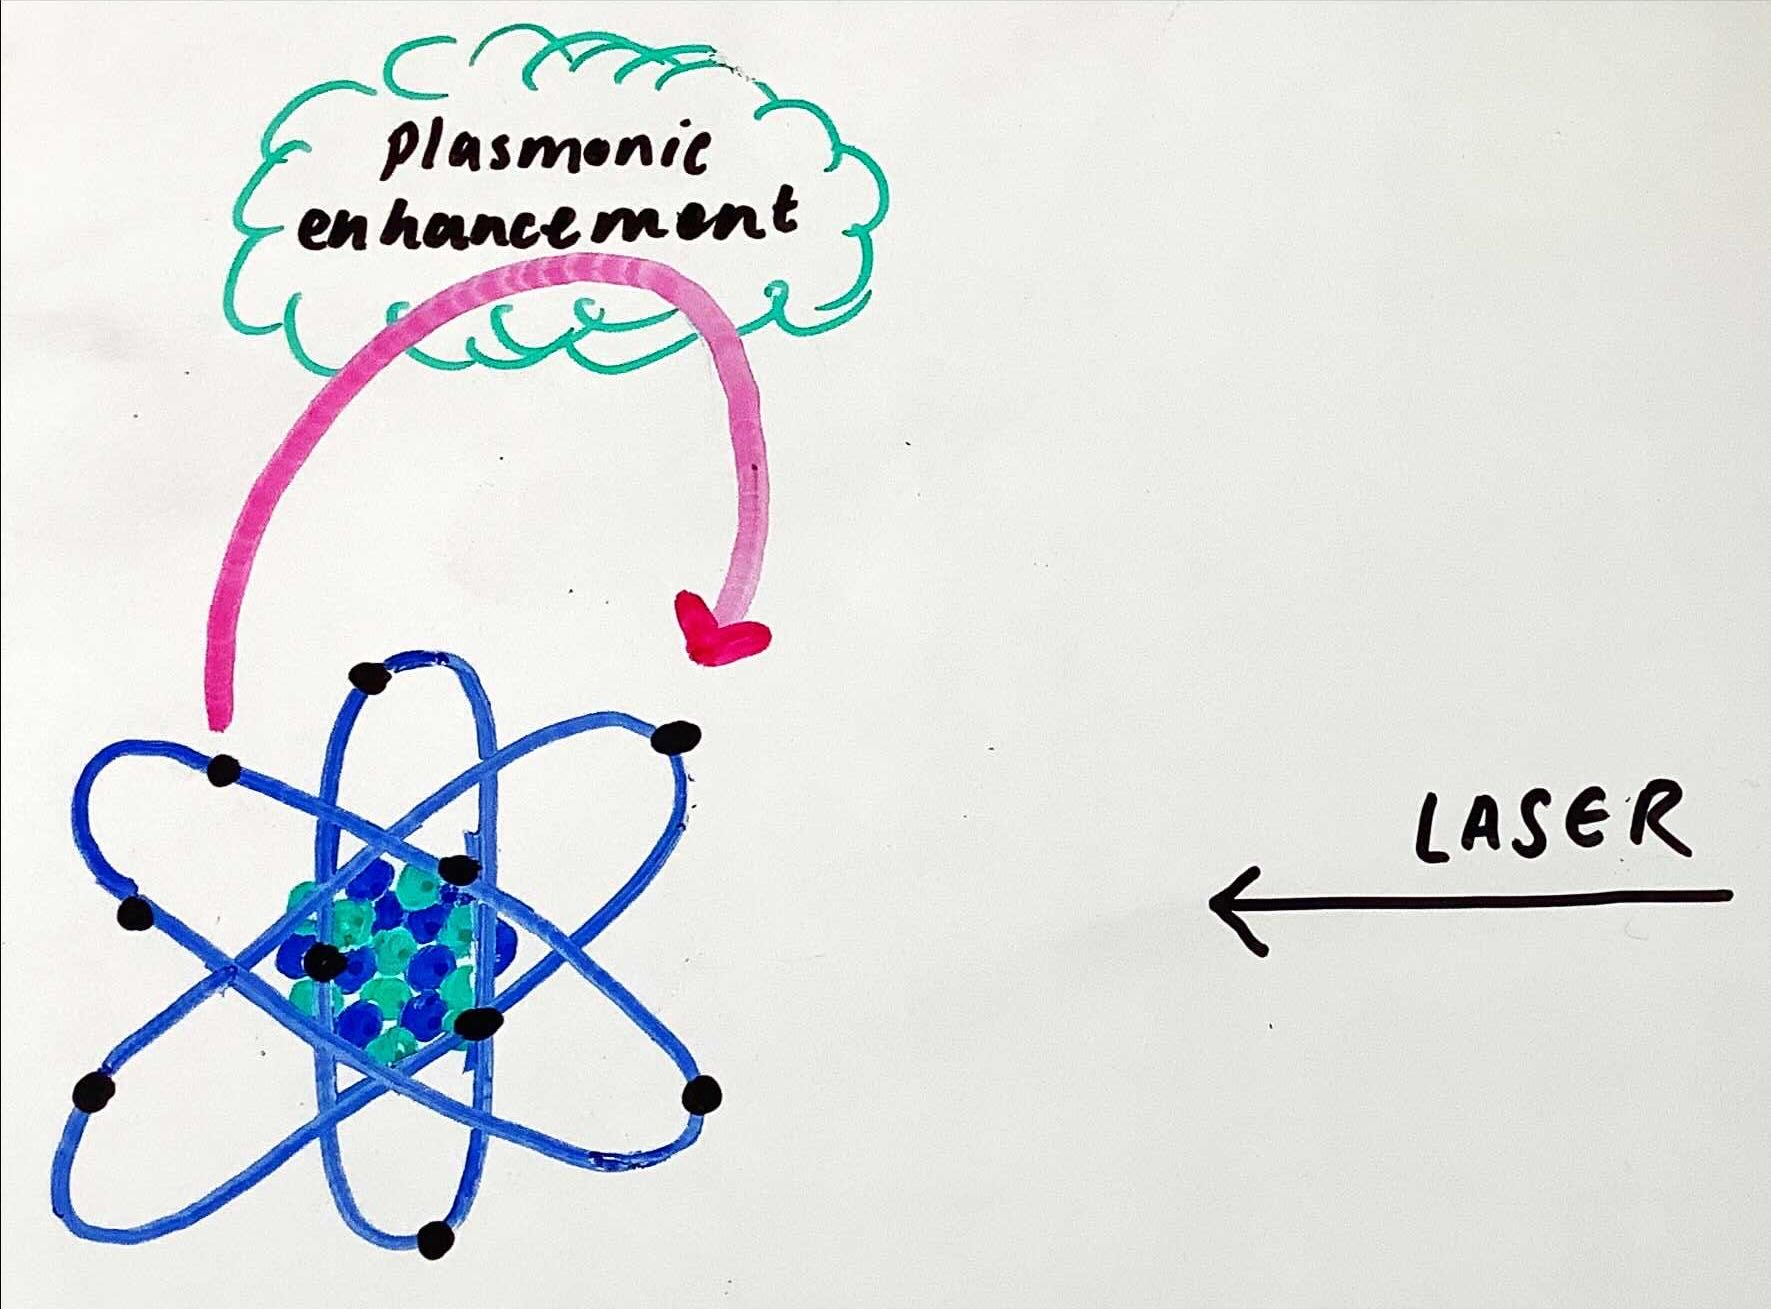 plasmonic
enhancement
LASER